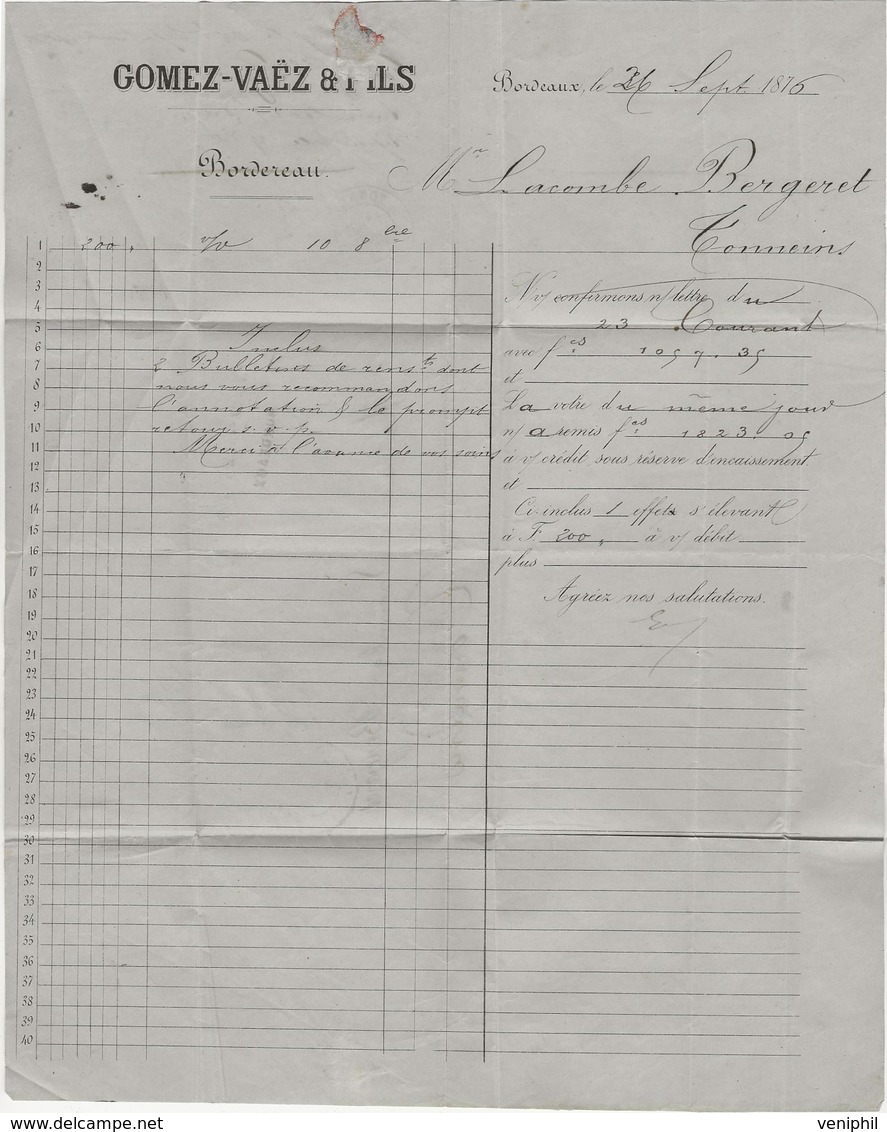 GOMEZ-VAËZ & FILS
Bordeaux, le 26 Sept. 1876
Bordereau.
Mr Lacombe Bergeret
Tonneins
1 200 " v/v 10 8bre
2
3
4
5
6 Inclus
7 2 Bulletins de renseig.ts dont
8 nous vous recommandons
9 l'annotation & le prompt
10 retour s.v.p.
11 Merci à l'avance de vos soins
12
13
14
15
16
17
18
19
20
21
22
23
24
25
26
27
28
29
30
31
32
33
34
35
36
37
38
39
40
N/ v/ confirmons n/ lettre du
23 Courant
avec fcs 1057.35
et
La votre du même jour
n/ a remis fcs 1823.05
à v/ crédit sous réserve d'encaissement
et
Ci-inclus 1 effets s'élevant
à F. 200 " à v/ débit
plus
Agréez nos salutations.
veniphil